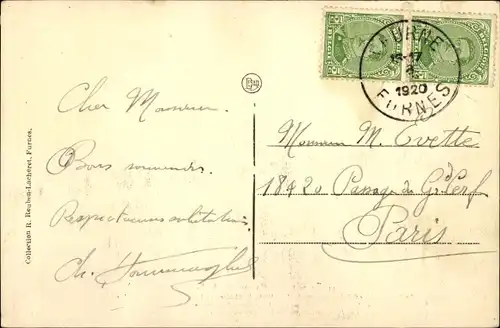 VEURNE
1920
FURNES
BELGIQUE
Cher Monsieur
Bons souvenirs.
Respectueuses salutations
Ch.
Monsieur M. Evette
18 & 20 Passage du Gd Cerf
Paris
Collection R. Reuben-Lacheret, Furnes.